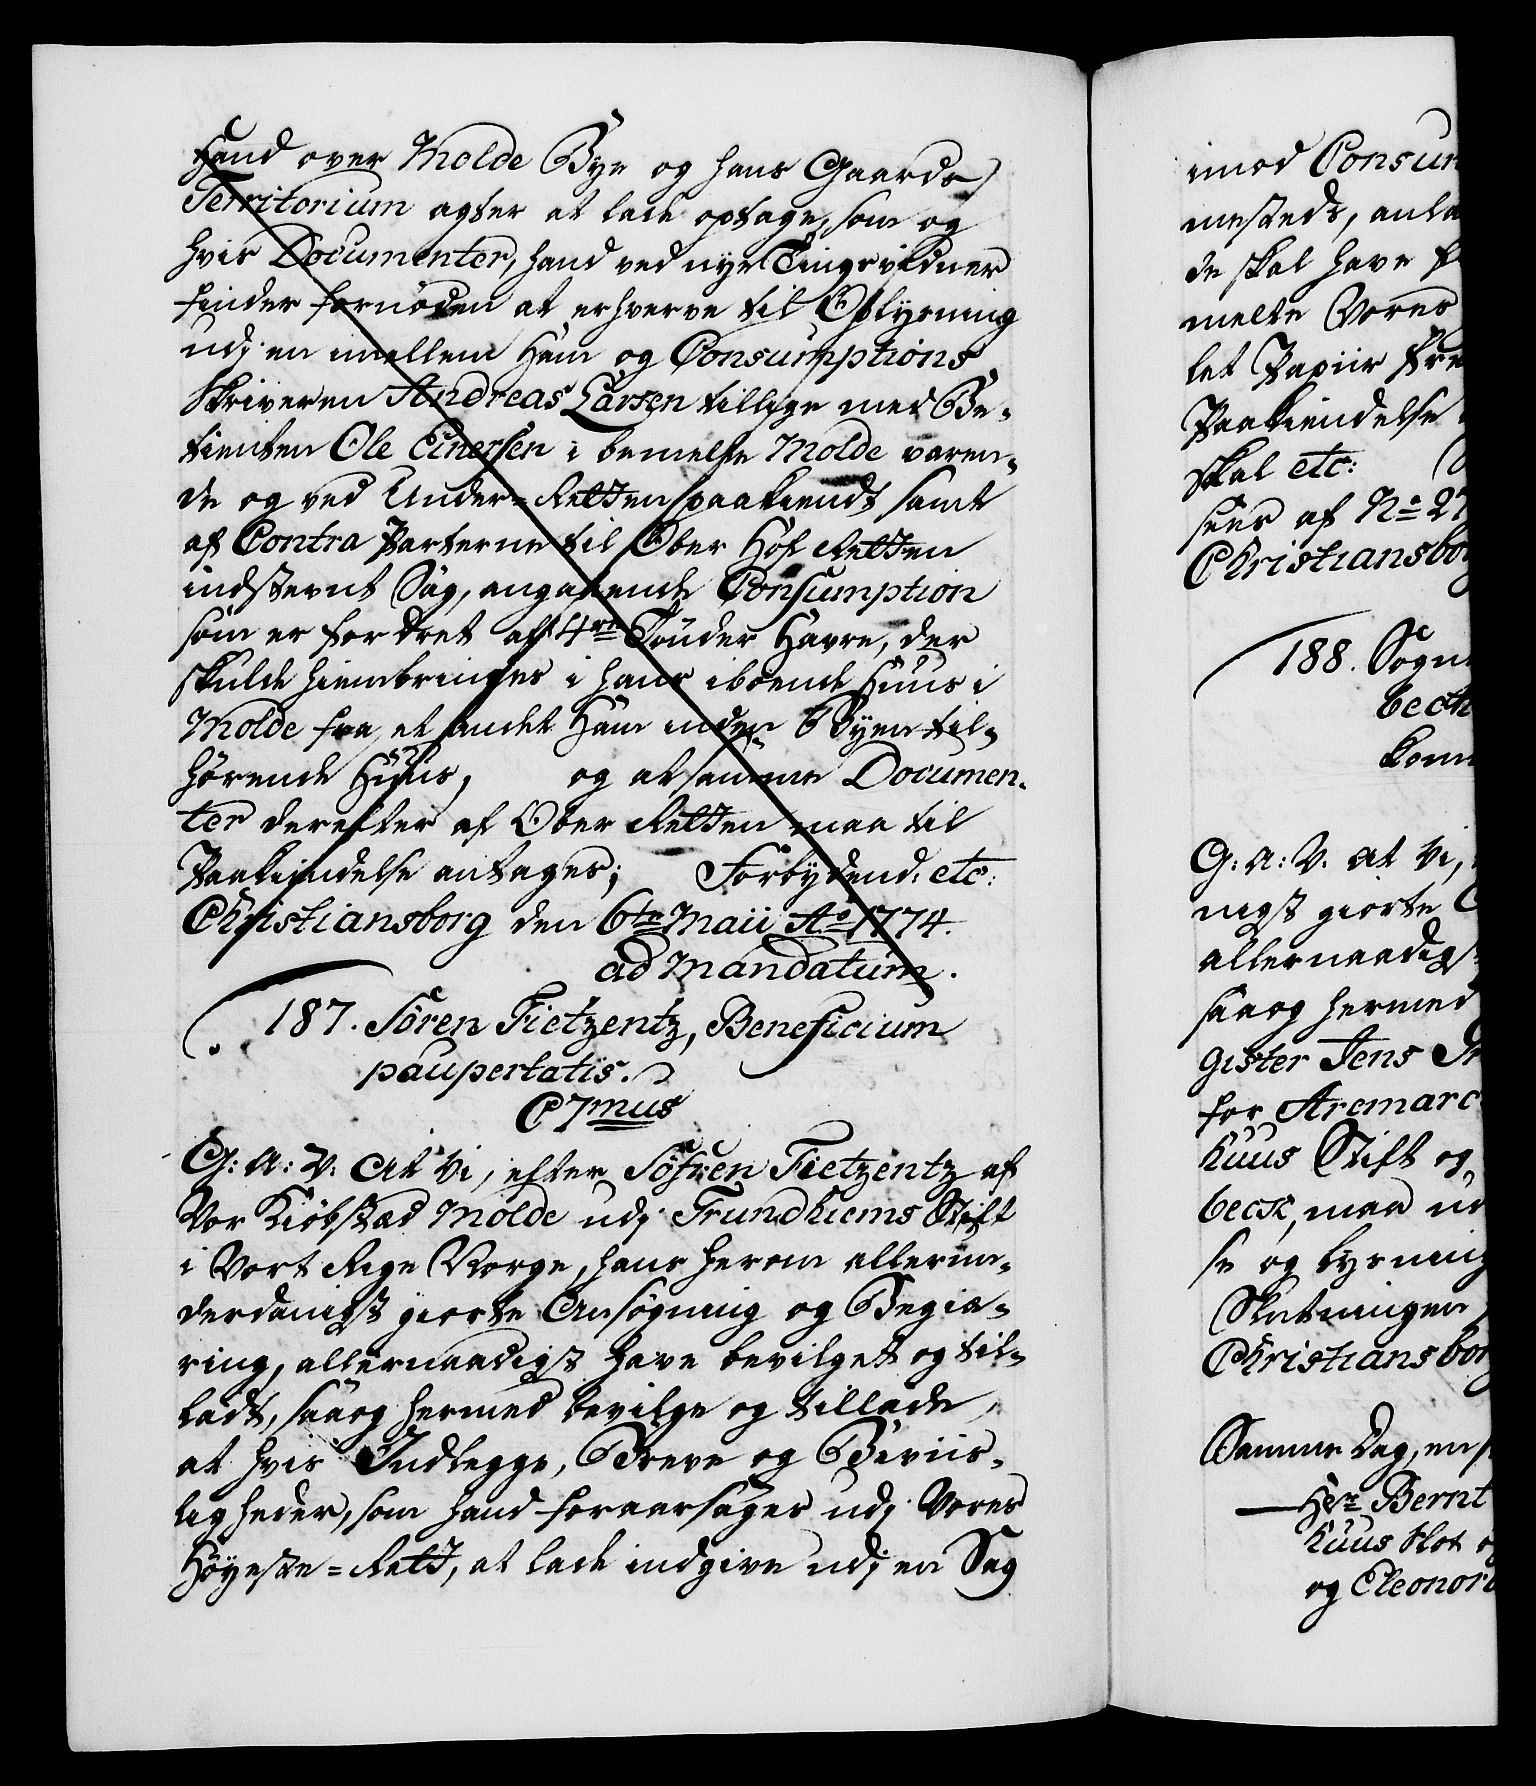 Hand over Molde Bye og hans Gaards
Territorium agter at lade optage, som og
hvis Documenter, hand ved nye Tingsvidner
finder fornöden at erhverve til Oplysning
udj en imellem Ham og Consumptions
Skriveren Andreas Larsen tillige med Be-
tienten Ole Einersen i bemelte Molde væren-
de og ved Under-Retten paakiendt samt
af Contra Parterne til Ober Hof Retten
indstevnt Sag, angaaende Consumption
som er fordret af 4re Tönder Havre, der
skulde hiembringes i hans iboende Huus i
Molde fra et andet Ham inden Byen til-
hørende Huus, og at samme Documen-
ter derefter af Ober Retten maa til
Paakiendelse antages; Forbydend: etc:
Christiansborg den 6te Maii Ao 1774.
ad Mandatum.
187. Sören Fietzentz, Beneficium
paupertatis.
C 7mus
G: A: V: At Vi, efter Sören Fietzentz af
Vor Kiöbstæd Molde udj Trundhiems Stift
i Vort Rige Norge, hans herom allerun-
derdanigst giorte Ansögning og Begiæ-
ring, allernaadigst have bevilget og til-
ladt, saaog hermed bevilge og tillade,
at hvis Indlegge, Breve og Beviis-
ligheder, som hand foraarsages udj Vores
Höyeste-Rett, at lade indgive udj en Sag
imod Consum
mesteds, anla
de skal have
melte Vores
let Papiir
Paakiendelse
skal etc:
sees af No 27
Christiansborg
188. Sogne
beck
kom
G: A: V: At Vi,
nigst giorte
allernaadigst
saaog hermed
gister Jens
for Aremarc
huus Stift og
beck, maa
se og lysning
Slutningen
Christiansborg
Samme Dag, en
Hr. Bernt
huus Slot
og Eleonora